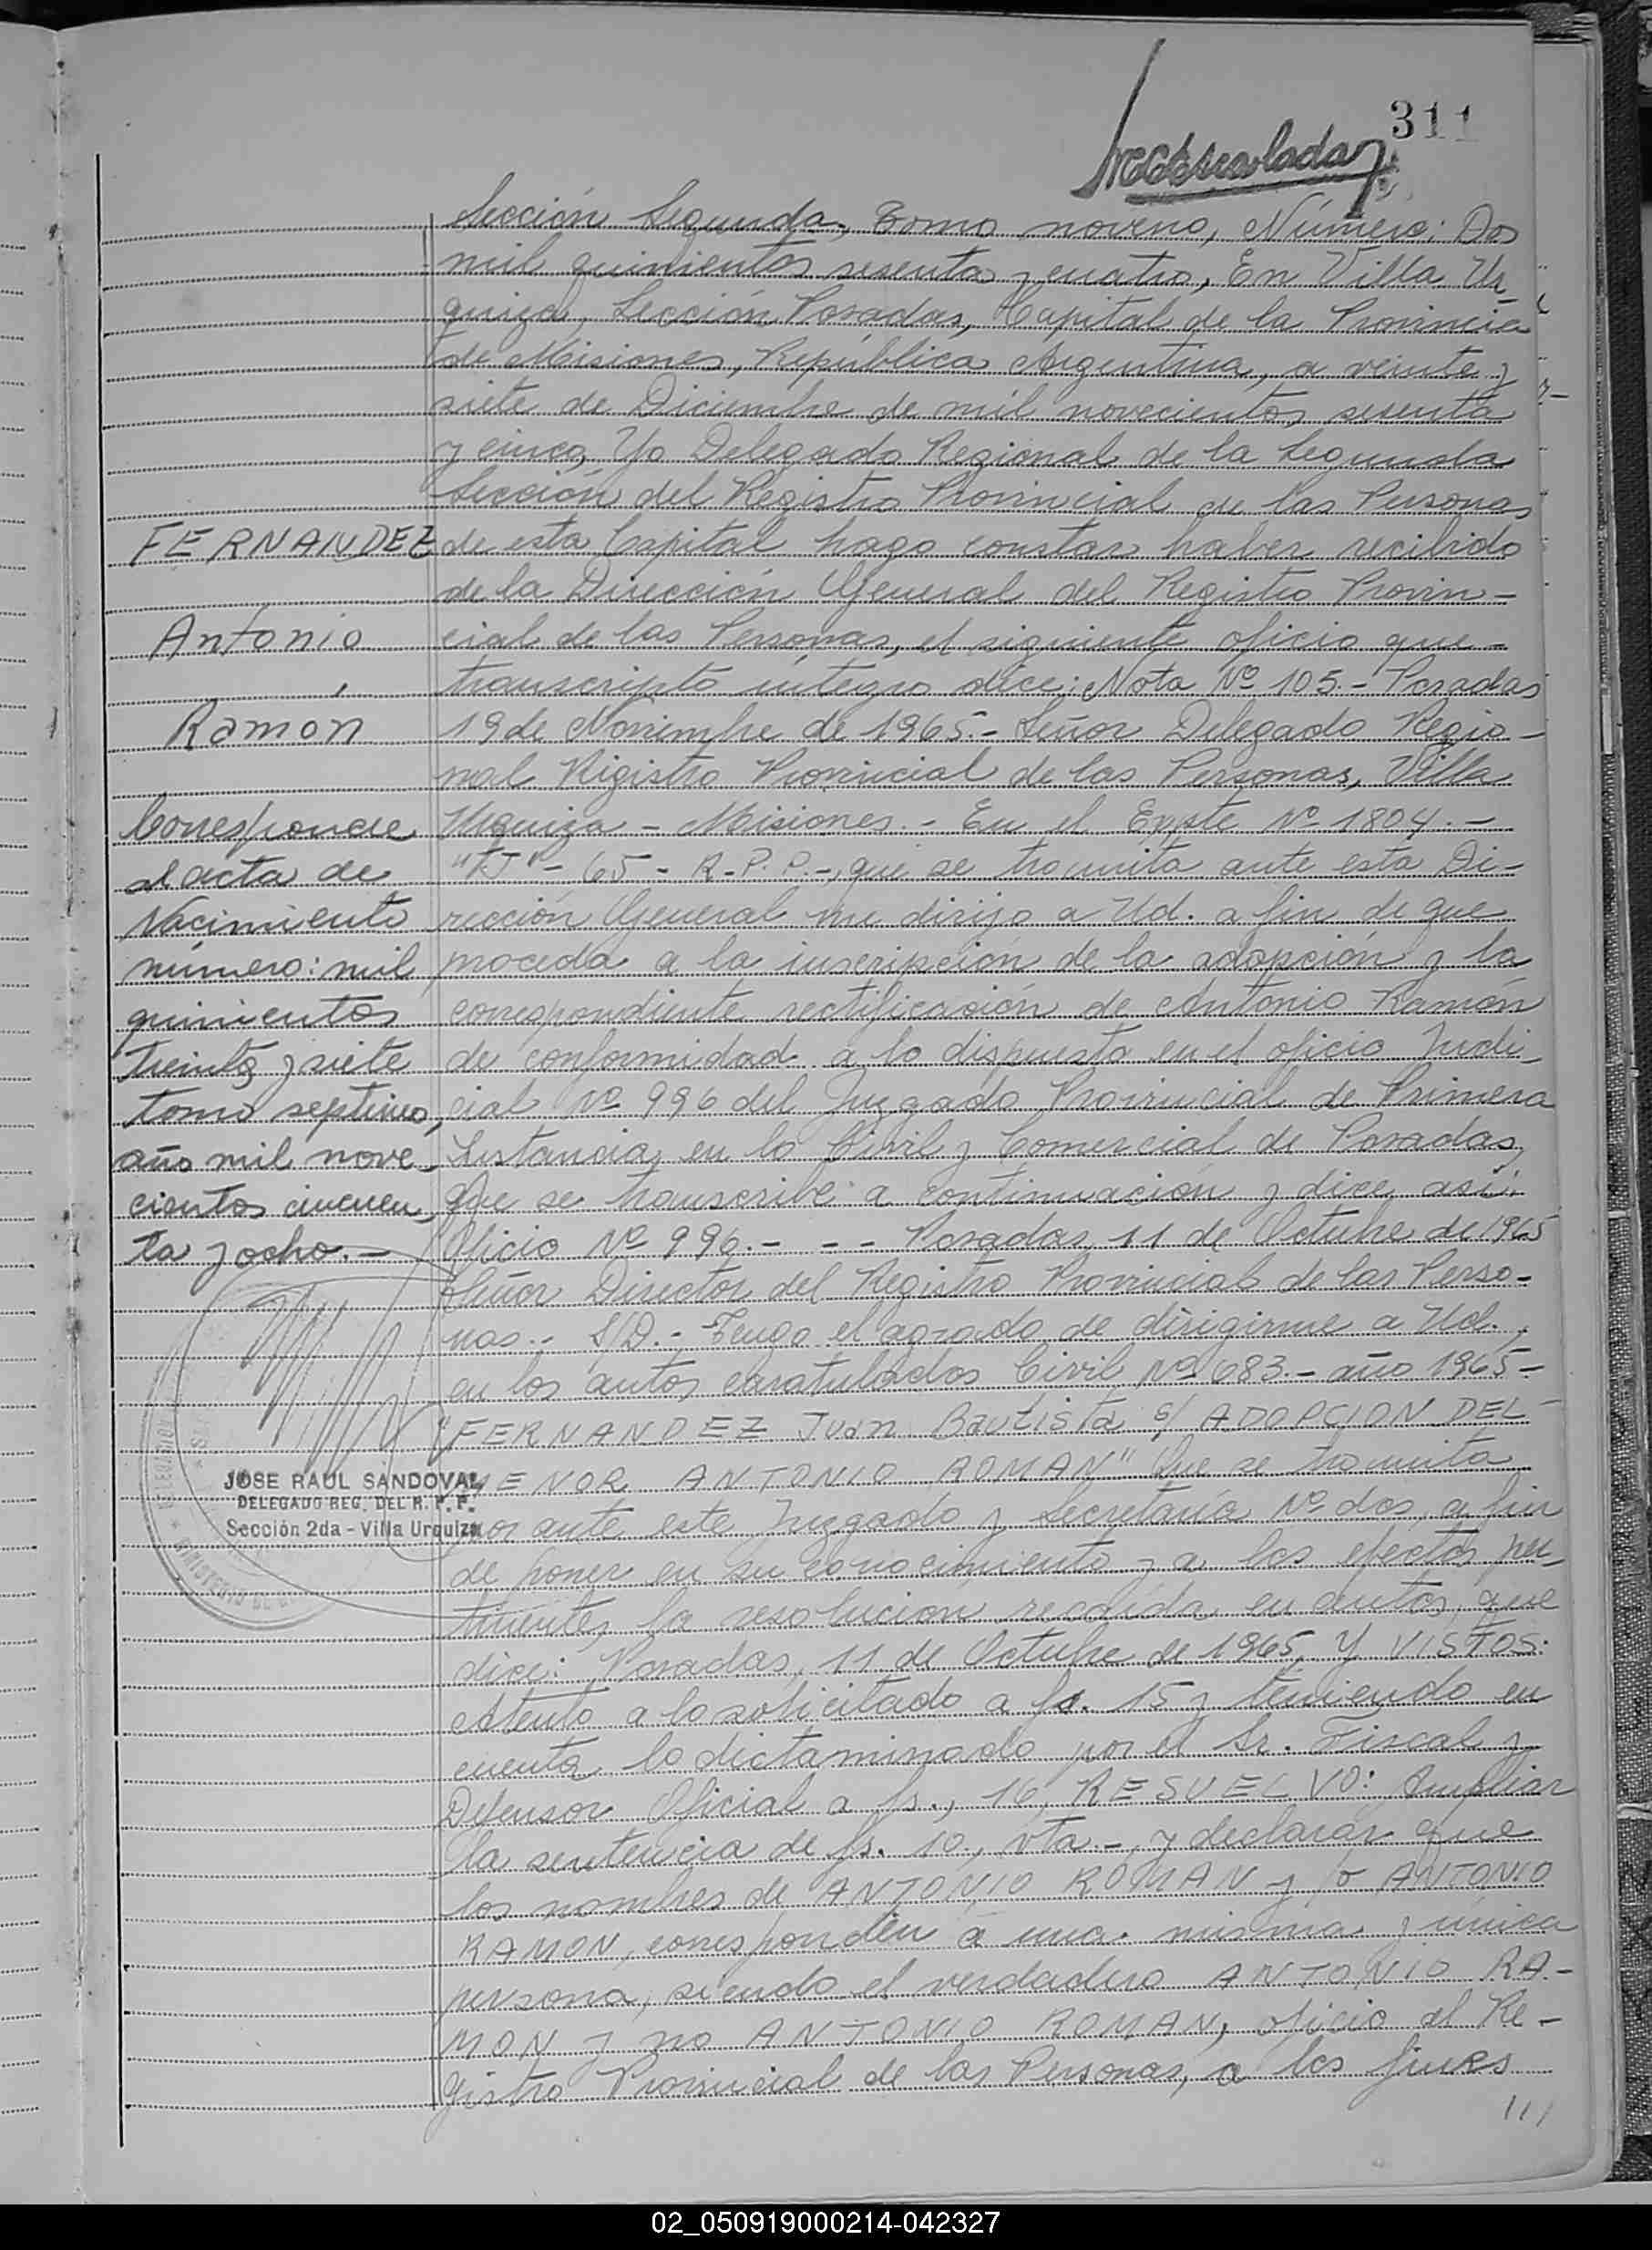 311
Sección Segunda, Tomo noveno, Número: Dos
mil quinientos sesenta y cuatro, En Villa Ur_
quiza, Sección Posadas, Capital de la Provincia
de Misiones, República Argentina, a veinte y
siete de Diciembre de mil novecientos sesenta
y cinco, Yo Delegado Regional de la Segunda
Sección del Registro Provincial de las Personas
de esta Capital hago constar haber recibido
de la Dirección General del Registro Provin-
cial de las Personas, el siguiente oficio que-
transcripto íntegro dice: Nota Nº 105.- Posadas
19 de Noviembre de 1965.- Señor Delegado Regio-
nal Rigistro Provincial de las Personas, Villa
Urquiza - Misiones.- En el Expte Nº 1804.-
- 65 - R.P.P.-, que se tramita ante esta Di-
rección General me dirijo a Ud. a fin de que
proceda a la inscripción de la adopción y la
correspondiente rectificación de Antonio Ramón
de conformidad a lo dispuesto en el oficio Judi_
cial Nº 996 del Juzgado Provincial de Primera
Instancia, en lo Civil y Comercial de Posadas,
que se transcribe a continuación y dice así:
Oficio Nº 996.- - - Posadas, 11 de Octubre de 1965
Señor Director del Registro Provincial de las Perso-
nas.- S/D.- Tengo el agrado de dirigirme a Ud.,
en los autos caratulados Civil Nº 683.- año 1965-
"FERNANDEZ Juan Bautista s/ ADOPCION DEL-
MENOR ANTONIO ROMAN" Que se tramita
por ante este Juzgado y Secretaría Nº dos, a fin
de poner en su conocimiento y a los efectos per_
tinentes, la resolución recaída en autos, que
dice: Posadas, 11 de Octubre de 1965, Y VISTOS:
Atento a lo solicitado a fs. 15 y teniendo en
cuenta lo dictaminado por el Sr. Fiscal y
Defensor Oficial a fs., 16, RESUELVO: Ampliar
la sentencia de fs. 10, vta.-, y declarar que
los nombres de ANTONIO ROMAN y/o ANTONIO
RAMON, corresponden a una misma y única
persona, siendo el verdadero ANTONIO RA-
MON y no ANTONIO ROMAN, oficio al Re-
gistro Provincial de las Personas, a los fines
///
FERNANDEZ
Antonio
Ramón
Corresponde
al acta de
Nacimiento
número: mil
quinientos
treinta y siete
tomo septimo,
año mil nove_
cientos cincuen_
ta y ocho.-
JOSE RAUL SANDOVAL
DELEGADO REG. DEL R. P. P.
Sección 2da - Villa Urquiza
02_050919000214-042327